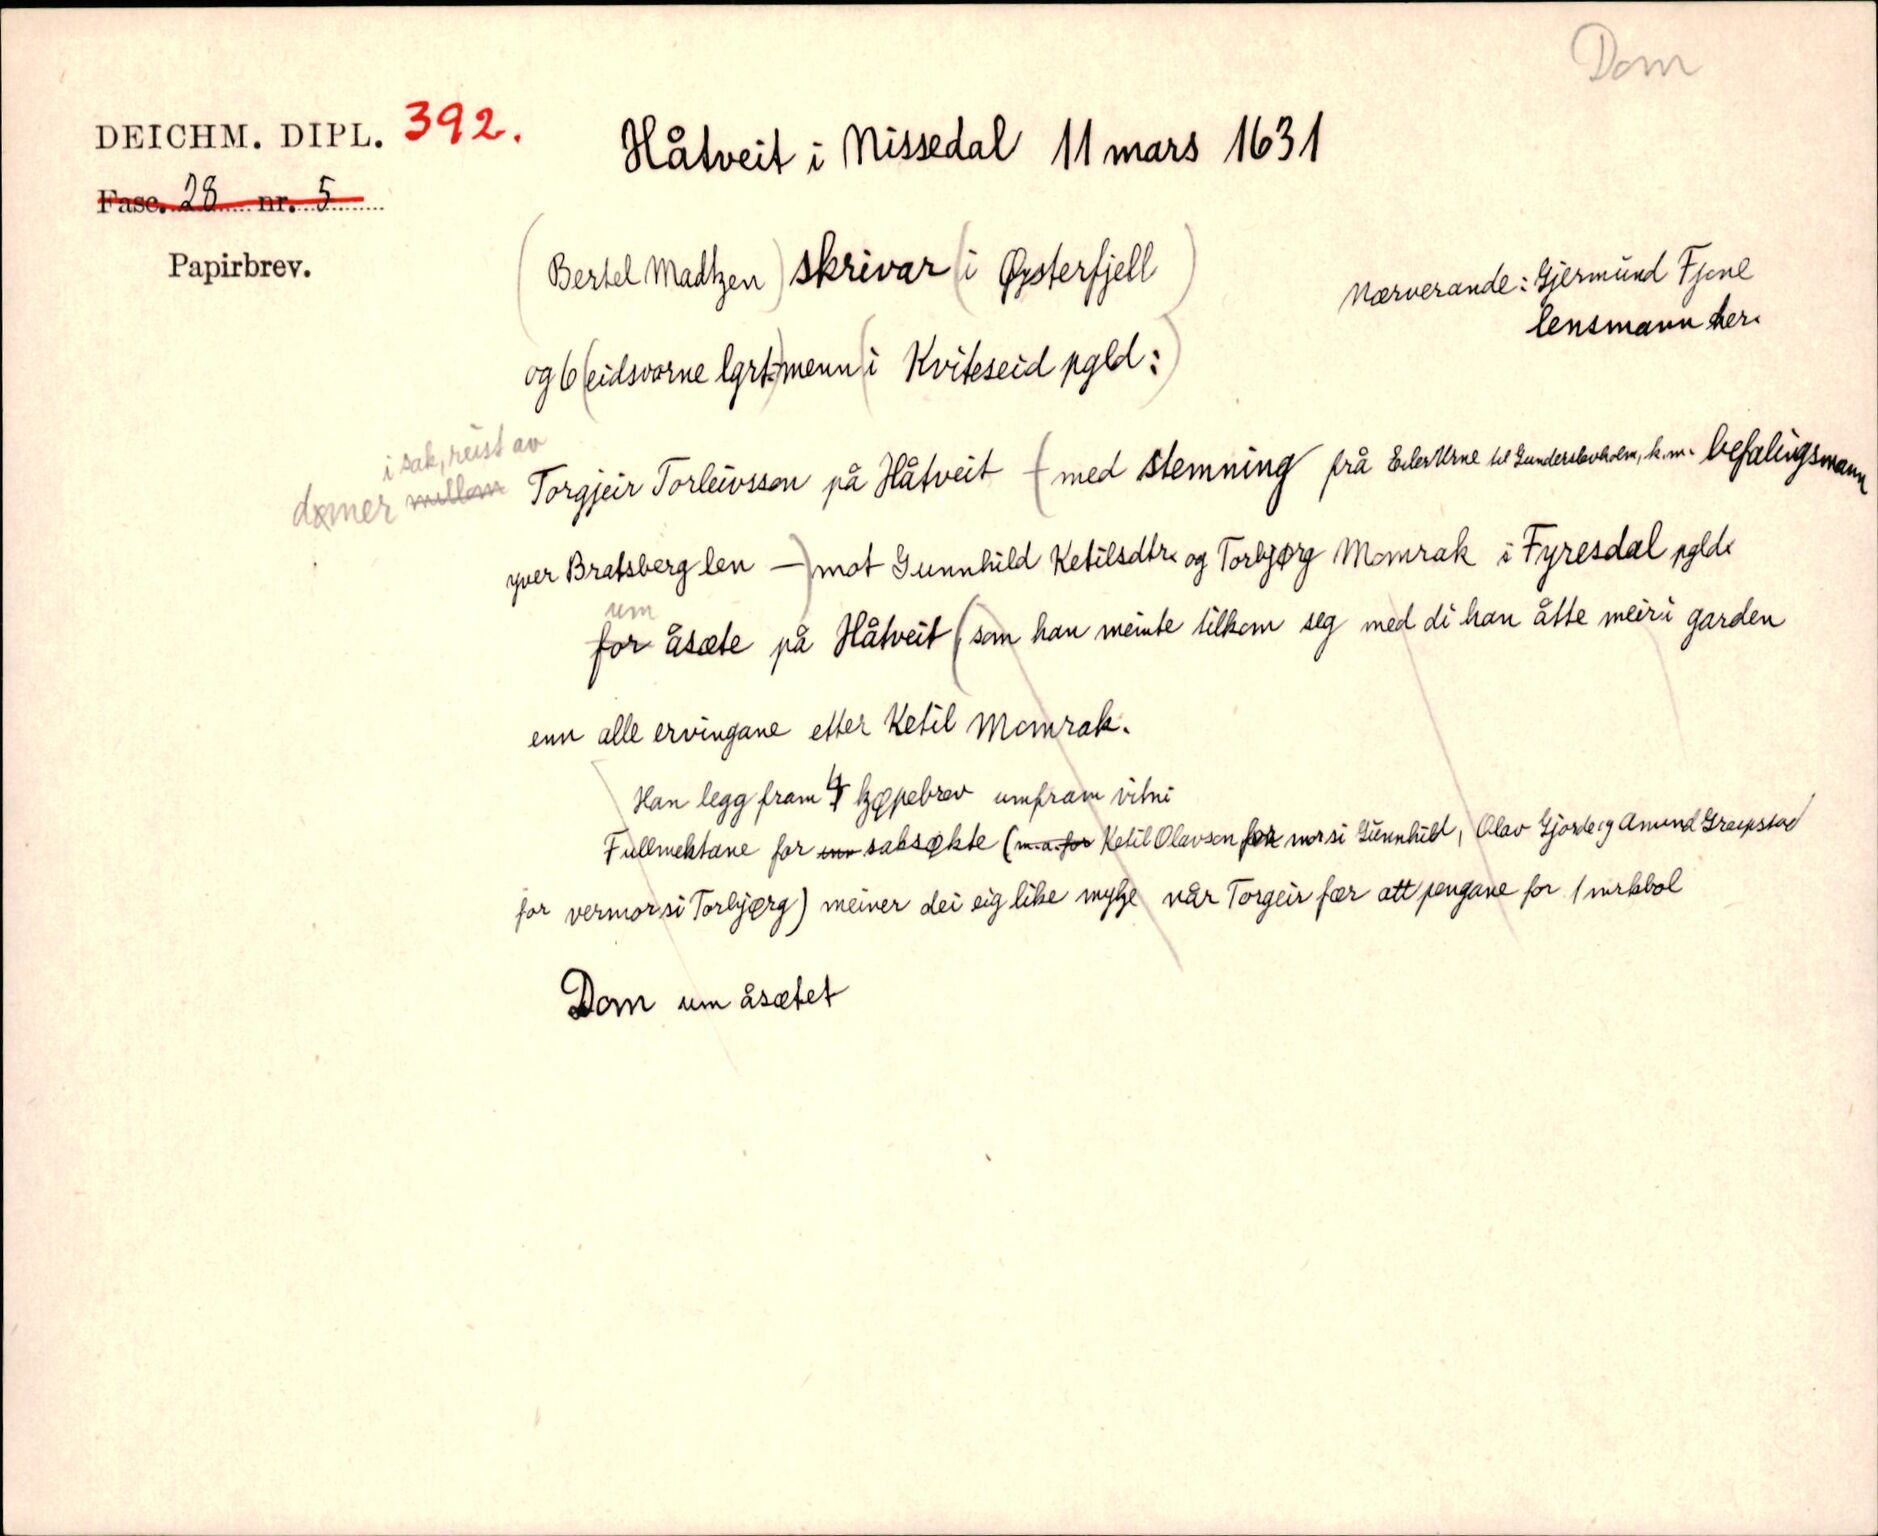 Dom
DEICHM. DIPL. 392.
Håtveit i Nissedal 11 mars 1631
Fasc. 28 nr. 5
Papirbrev.
(Bertel Madtzen) skrivar (i Øysterfjell)
Nærverande: Gjermund Fjone
lensmann her.
og 6 (eidsvorne lgrt.) menn (i Kviteseid pgld:)
i sak, reist av
dømer millom Torgjeir Torleivsson på Håtveit (med stemning frå Eiler Urne til Gunderslevholm, k.m. befalingsmann
yver Bratsberg len —) mot Gunnhild Ketilsdtr. og Torbjørg Momrak i Fyresdal pgld.
um
for åsæte på Håtveit (som han meinte tilkom seg med di han åtte meir i garden
enn alle ervingane etter Ketil Momrak.
Han legg fram 4 kjøpebrev umfram vitni
Fullmektane for saksøkte (m.a. for Ketil Olavson for mor si Gunnhild, Olav Gjorde og Amund Graipstad
for vermor si Torbjørg) meiner dei eig like mykje når Torgeir fær att pengane for 1 mrkbol
Dom um åsætet